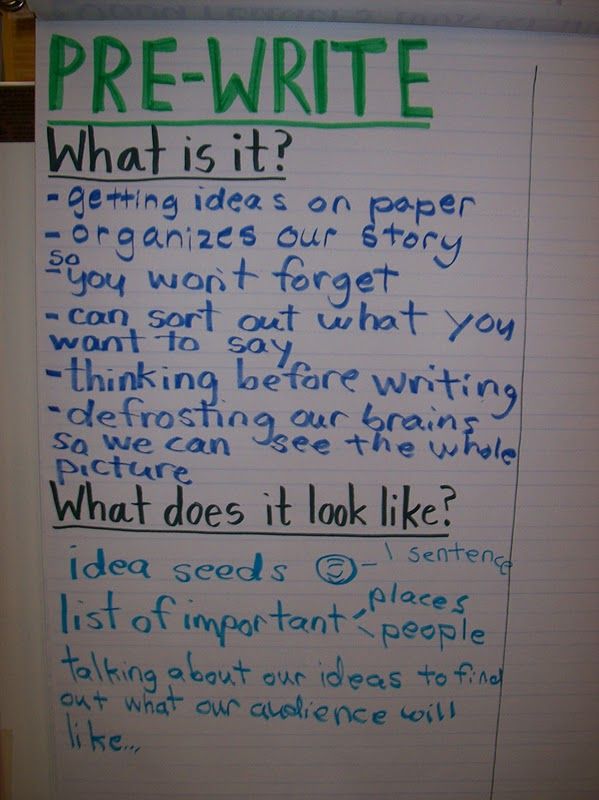 PRE-WRITE
What is it?
- getting ideas on paper
- organizes our story
so
- you won't forget
- can sort out what you
want to say
- thinking before writing
- defrosting our brains
so we can see the whole
picture
What does it look like?
idea seeds - 1 sentence
list of important < places
people
talking about our ideas to find
out what our audience will
like...